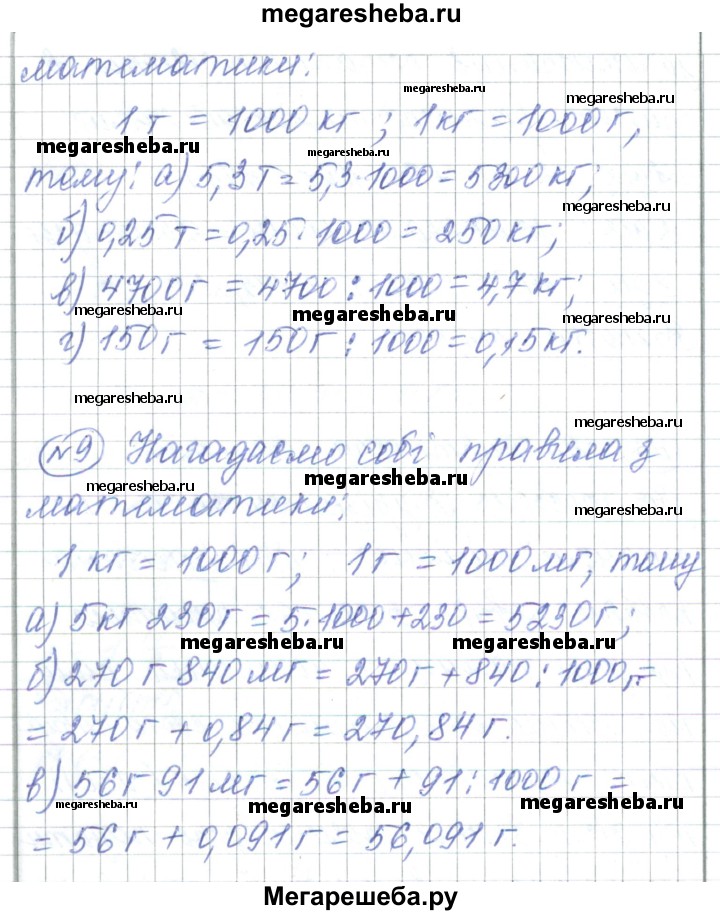 megaresheba.ru
математики:
megaresheba.ru
megaresheba.ru
1 т = 1000 кг ; 1 кг = 1000 г,
megaresheba.ru
megaresheba.ru
тому: а) 5,3 т = 5,3·1000 = 5300 кг;
megaresheba.ru
б) 0,25 т = 0,25·1000 = 250 кг;
в) 4700 г = 4700 : 1000 = 4,7 кг;
megaresheba.ru
megaresheba.ru
megaresheba.ru
г) 150 г = 150 г : 1000 = 0,15 кг.
megaresheba.ru
megaresheba.ru
№9 Нагадаємо собі правила з
megaresheba.ru
megaresheba.ru
математики:
megaresheba.ru
1 кг = 1000 г; 1 г = 1000 мг, тому
а) 5 кг 230 г = 5·1000 + 230 = 5230 г;
megaresheba.ru
megaresheba.ru
б) 270 г 840 мг = 270 г + 840 : 1000 г =
= 270 г + 0,84 г = 270,84 г.
в) 56 г 91 мг = 56 г + 91 : 1000 г =
megaresheba.ru
megaresheba.ru
megaresheba.ru
= 56 г + 0,091 г = 56,091 г.
Мегарешеба.ру